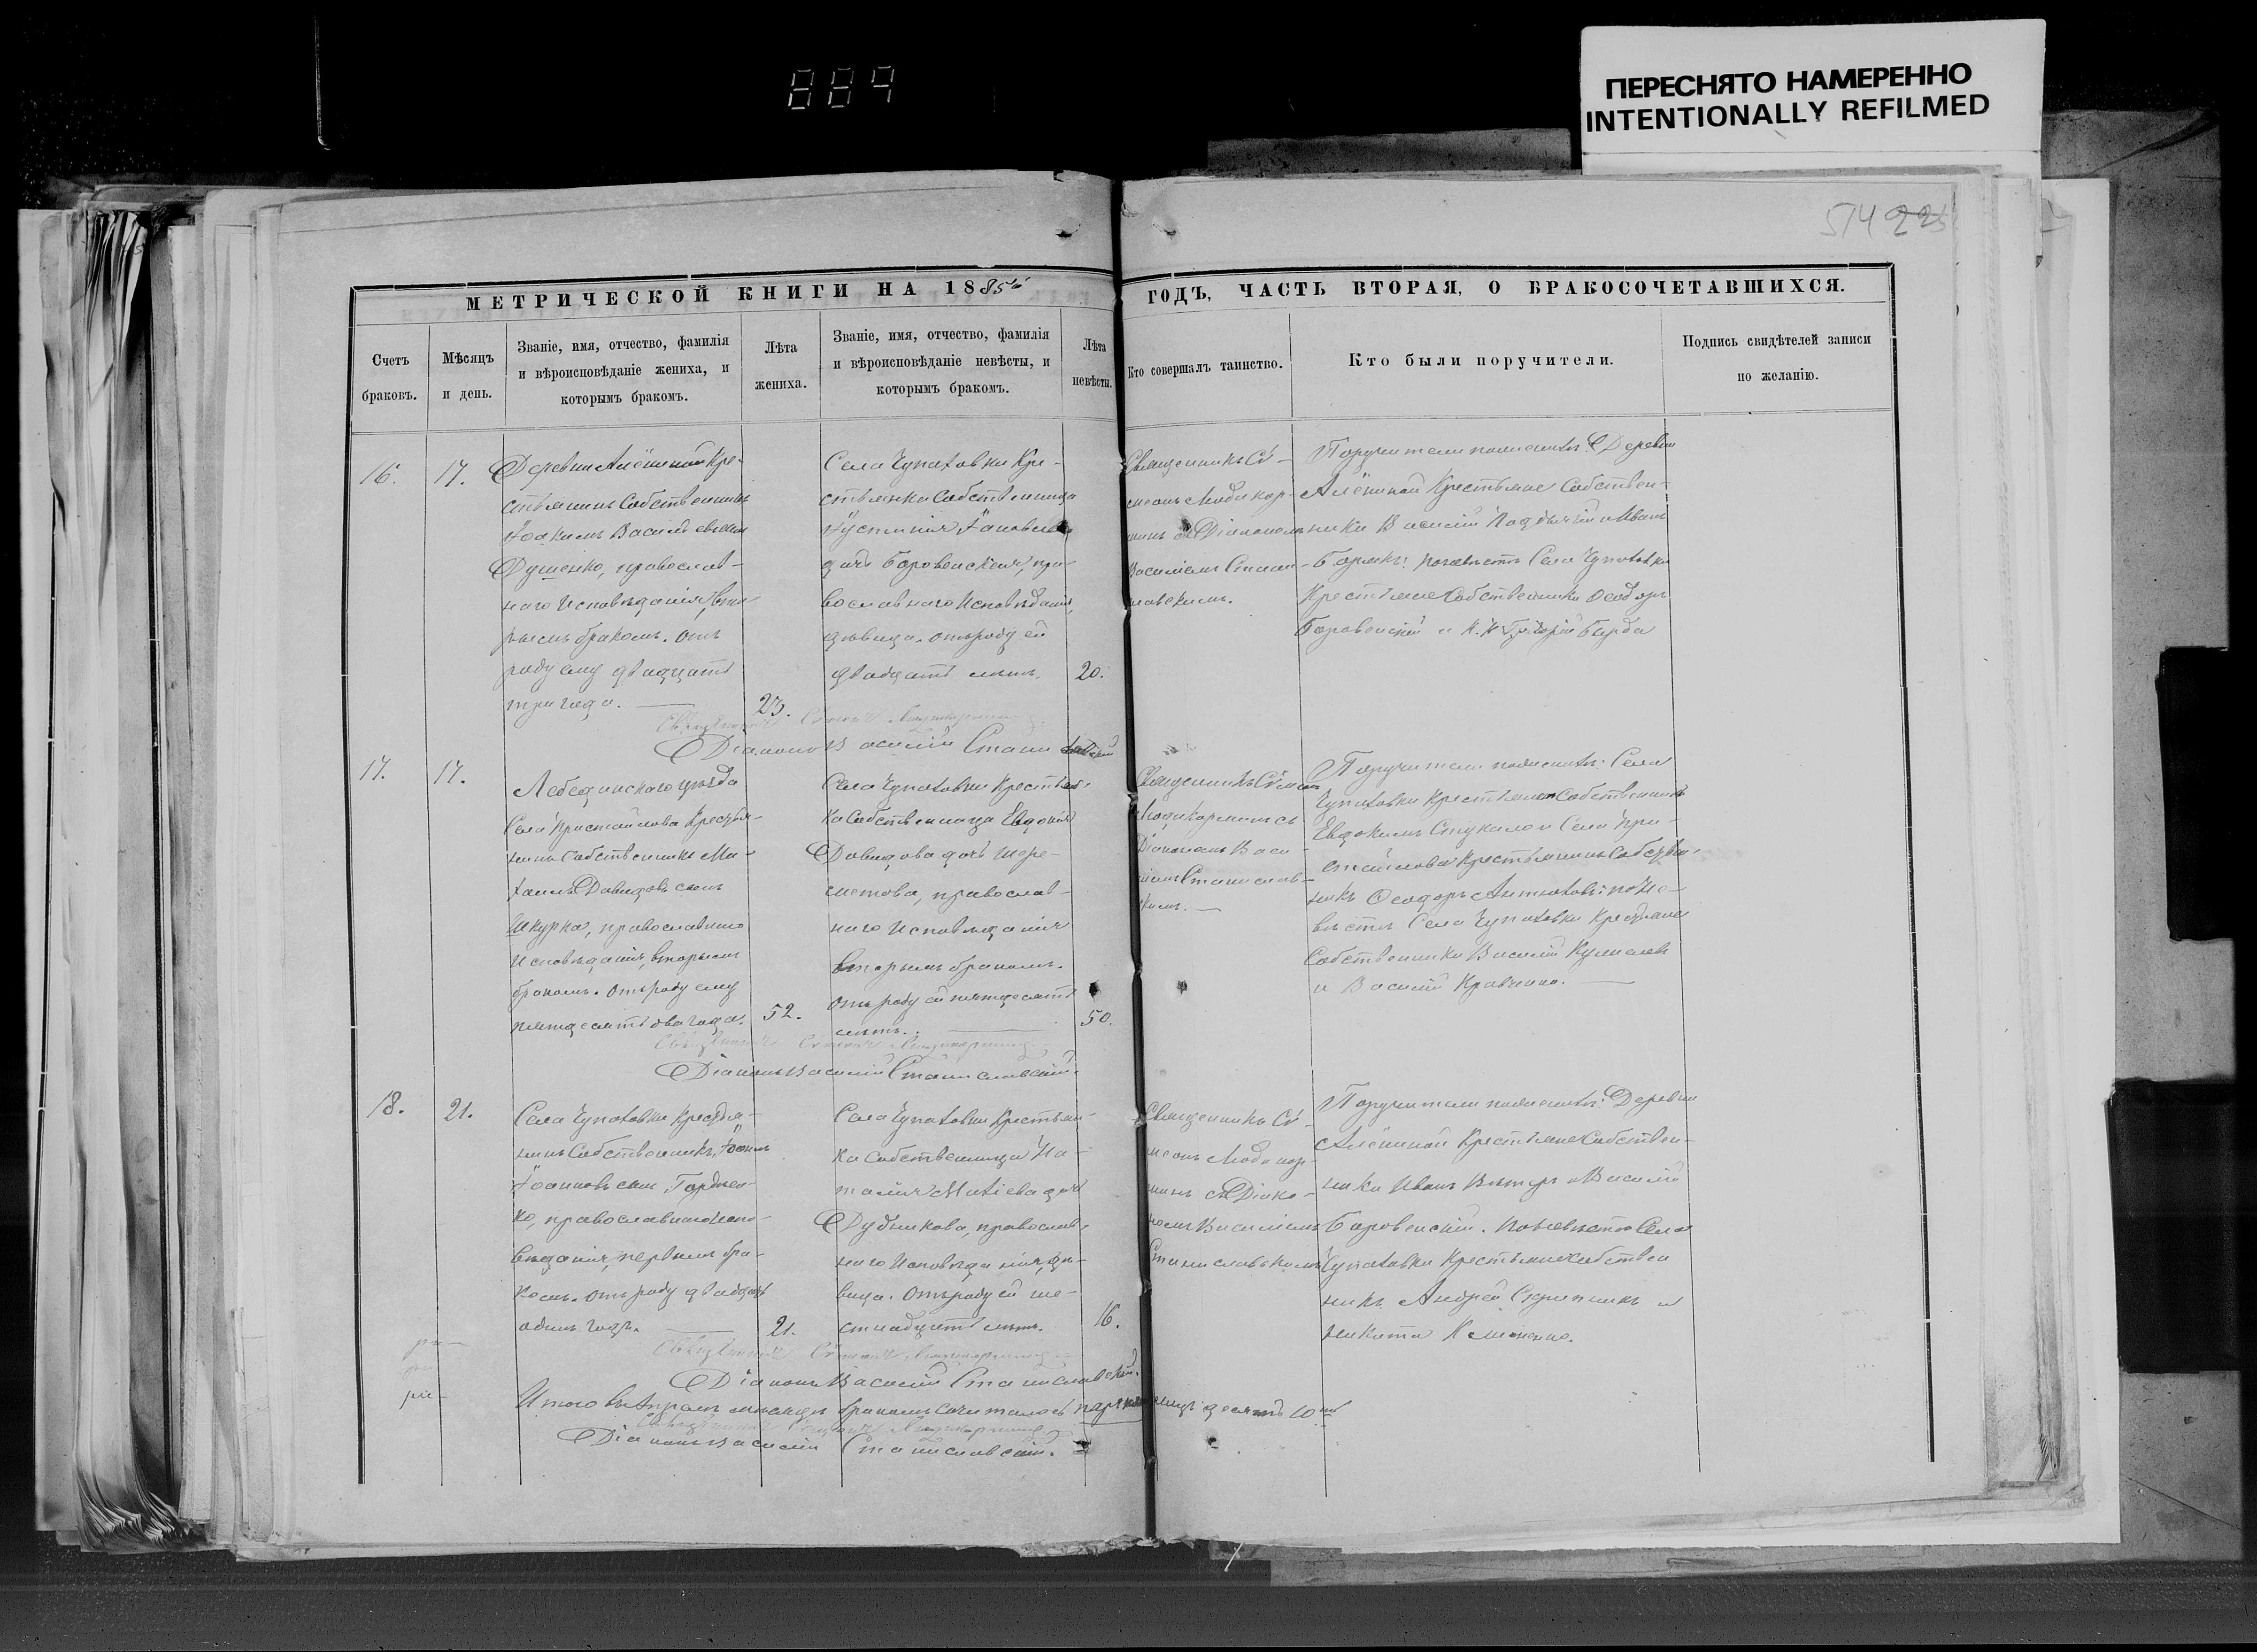 889
ПЕРЕСНЯТО НАМЕРЕННО
INTENTIONALLY REFILMED
514 225
МЕТРИЧЕСКОЙ КНИГИ НА 1885
ГОДЪ, ЧАСТЬ ВТОРАЯ, О БРАКОСОЧЕТАВШИХСЯ.
Счетъ браковъ.
Мѣсяцъ и день.
Званіе, имя, отчество, фамилія
и вѣроисповѣданіе жениха, и
которымъ бракомъ.
Лѣта
жениха.
Званіе, имя, отчество, фамилія
и вѣроисповѣданіе невѣсты, и
которымъ бракомъ.
Лѣта
невѣсты.
Кто совершалъ таинство.
Кто были поручители.
Подпись свидѣтелей записи
по желанію.
16.
17.
Деревни Алёшиной Кре-
стьянинъ Собственникъ
Іоакимъ Васильевъ сынъ
Душенко, православ-
наго Исповѣданія, вто-
рымъ бракомъ. Отъ
роду ему двадцать
три года.
23.
Села Чупаховки Кре-
стьянка Собственница
дочь Боровенская, пра-
вославнаго Исповѣданія,
дѣвица. Отъ роду ей
двадцать лѣтъ.
20.
Священникъ Сѵ-
меонъ
съ Діакономъ
Василіемъ Станис-
лавскимъ.
Поручители по женихѣ: Деревни
Алёшиной Крестьяне Собствен-
ники Василій и Иванъ
по невѣстѣ Села Чупаховки
Крестьяне Собственники Ѳеодоръ
Боровенскій и Григорій Бырда
Діаконъ Василій Станиславскій
17.
17.
Лебединскаго уѣзда
Села Пристайлова Крестья-
нинъ Собственникъ Ми-
хаилъ Давидовъ сынъ
Шкурка, православнаго
Исповѣданія, вторымъ
бракомъ. Отъ роду ему
пятьдесятъ два года.
52.
Села Чупаховки Крестьян-
ка Собственница Евдокія
Давидова дочь Шере-
метова, православ-
наго Исповѣданія
вторымъ бракомъ.
Отъ роду ей пятьдесятъ
лѣтъ.
50.
Священникъ Сѵмеонъ
съ
Діакономъ Васи-
ліемъ Станислав-
скимъ.
Поручители по женихѣ: Села
Чупаховки Крестьянинъ Собственникъ
Евдокимъ Стукало и Села При-
стайлова Крестьянинъ Собствен-
никъ Ѳеодоръ Антюховъ: по не-
вѣстѣ Села Чупаховки Крестьяне
Собственники Василій
и Василій Кравченко.
Діаконъ Василій Станиславскій.
18.
21.
Села Чупаховки Крестья-
нинъ Собственникъ Іоаннъ
Іоанновъ сынъ Гордіен-
ко, православнаго Испо-
вѣданія, первымъ бра-
комъ. Отъ роду двадцать
одинъ годъ.
21.
Села Чупаховки Крестьян-
ка Собственница На-
талія Матіева дочь
Дудникова, православ-
наго Исповѣданія, дѣ-
вица. Отъ роду ей ше-
стнадцать лѣтъ.
16.
Священникъ Сѵ-
меонъ
съ Діако-
номъ Василіемъ
Станиславскимъ
Поручители по женихѣ: Деревни
Алёшиной Крестьяне Собствен-
ники Иванъ Вѣтеръ и Василій
Боровенскій. По невѣстѣ Села
Чупаховки Крестьяне Собствен
никъ Андрей Скрипникъ и
Никита
Діаконъ Василій Станиславскій.
Итого въ Апрѣлѣ мѣсяцѣ бракомъ сочеталось десять 10
Діаконъ Василій Станиславскій.